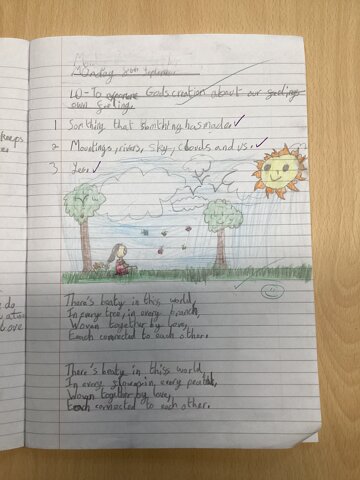 Monday September
LO - To Gods creation about our feelings
own feeling.
1 Somthing that somthing has made.
2 Mountings, rivers, sky, clouds and us.
3. Yes.
There's beaty in this world,
In every tree, in every branch,
Woven together by love,
Each connected to each other.
There's beaty in thiss world,
In every in every
Woven together by love,
Each connected to each other.
keeps
do
Love